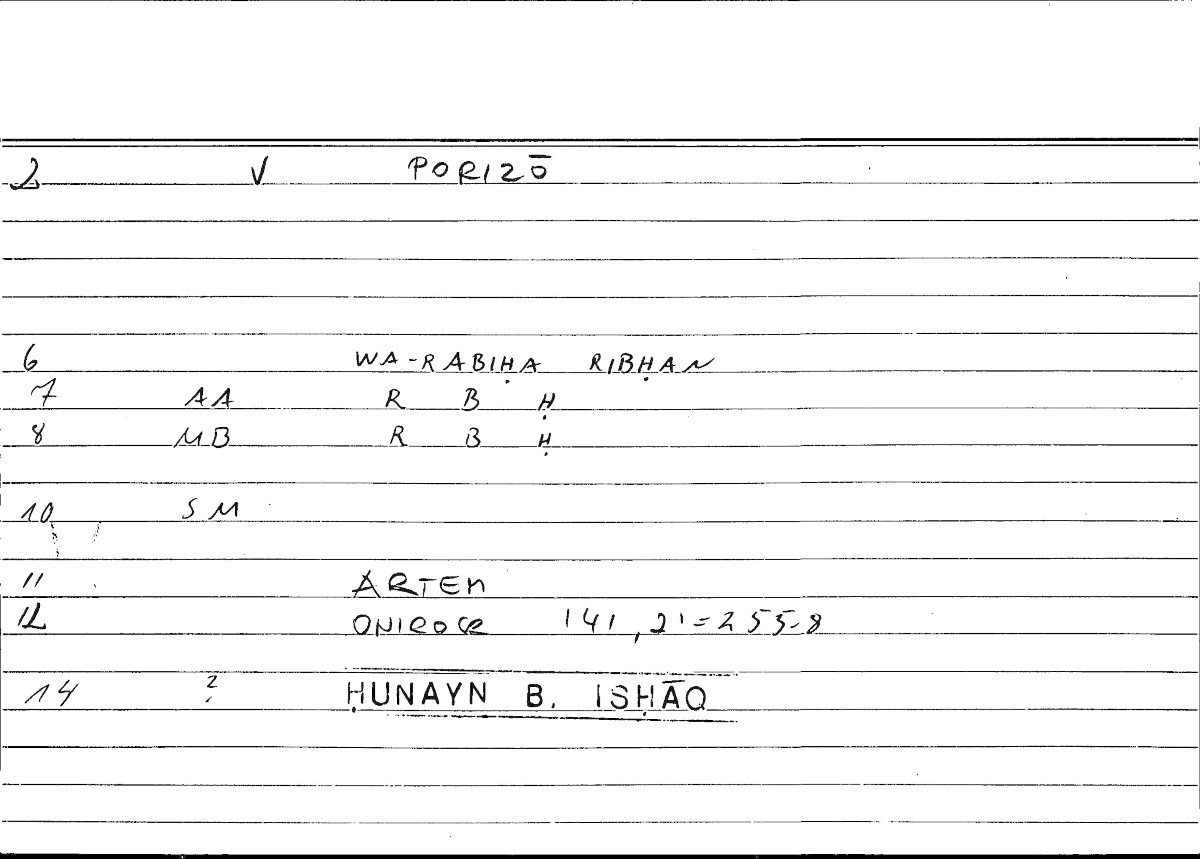 2 V PORIZŌ
6 WA-RABIḤA RIBḤAN
7 AA R B Ḥ
8 MB R B Ḥ
10 SM
11 ARTEM
12 ONIROCR 141,21=255-8
14 ? ḤUNAYN B. ISḤĀQ